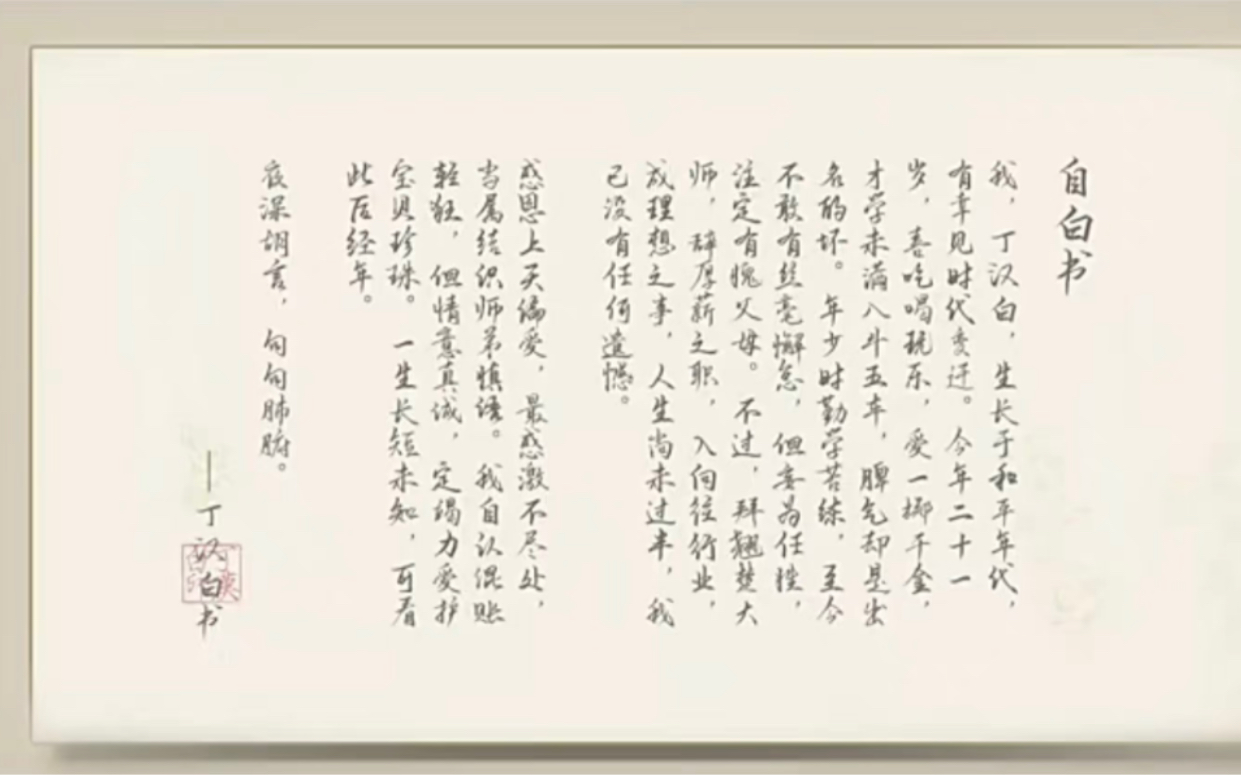 自白书
我，丁汉白，生长于和平年代，
有幸见时代变迁。今年二十一
岁，喜吃喝玩乐，爱一掷千金，
才学未满八斗五车，脾气却是出
名的坏。年少时勤学苦练，至今
不敢有丝毫懈怠，但妄为任性，
注定有愧父母。不过，拜翘楚大
师，辞厚薪之职，入向往行业，
成理想之事，人生尚未过半，我
已没有任何遗憾。
感恩上天偏爱，最感激不尽处，
当属结识师弟慎语。我自认混账
轻狂，但情意真诚，定竭力爱护
宝贝珍珠。一生长短未知，可看
此后经年。
夜深胡言，句句肺腑。
——丁汉白书